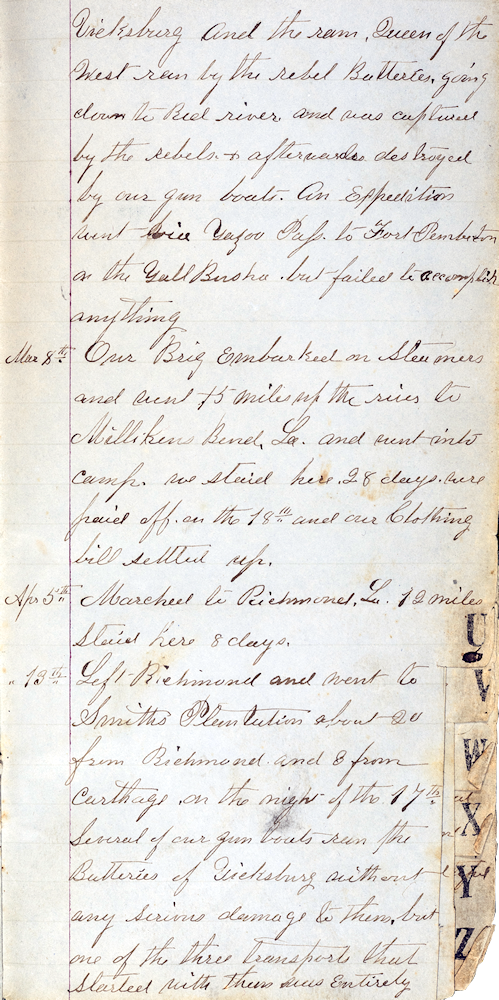 Vicksburg and the ram, Queen of the
West ran by the rebel Batteries, going
down to Red river and was captured
by the rebels & afterwards destroyed
by our gun boats. An Expedition
went via Yazoo Pass. to Fort Pemberton
on the Yall Busha. but failed to accomplish
anything
Mar 8th Our Brig Embarked on Steamers
and went 15 miles up the river to
Millikens Bend, La. and went into
camp. we staid here 28 days. were
paid off. on the 18th and our Clothing
bill settled up.
Apr 5th Marched to Richmond, La. 12 miles
Staid here 8 days.
" 13th Left Richmond and went to
Smiths Plantation about 20
from Richmond and 3 from
Carthage. on the night of the 17th
Several of our gun boats ran the
Batteries of Vicksburg without
any serious damage to them, but
one of the three transports that
started with them was Entirely
U
V
W
X
Y
Z